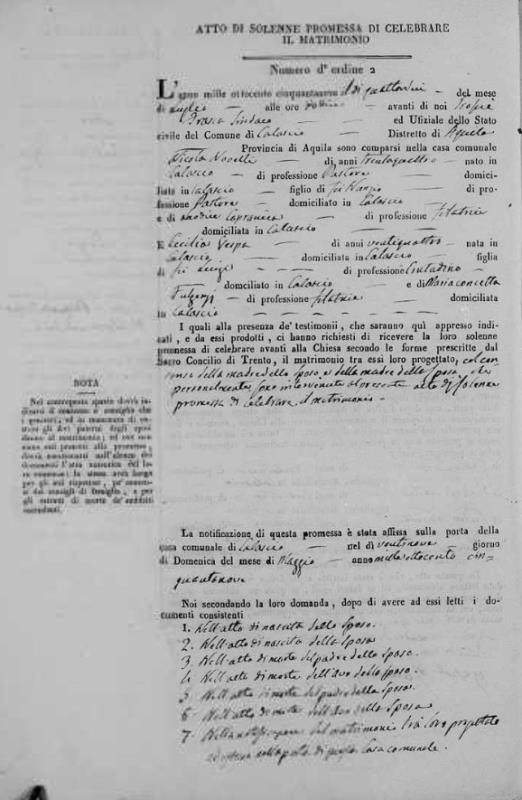 ATTO DI SOLENNE PROMESSA DI CELEBRARE
IL MATRIMONIO
Numero d' ordine 2
L'anno mille ottocento cinquantanove il dì quattordici del mese
di Luglio alle ore avanti di noi
Sindaco ed Ufiziale dello Stato
civile del Comune di Calascio Distretto di Aquila
Provincia di Aquila sono comparsi nella casa comunale
Nicola di anni trentaquattro nato in
Calascio di professione Pastore domici-
liato in Calascio figlio di fu di pro-
fessione Pastore domiciliato in Calascio
e di di professione filatrice
domiciliata in Calascio
E Cecilia Vespa di anni ventiquattro nata in
Calascio domiciliata in Calascio figlia
di fu Luigi di professione Contadino
domiciliato in Calascio e di Mariaconcetta
di professione filatrice domiciliata
in Calascio
I quali alla presenza de' testimonii, che saranno quì appresso indi-
cati, e da essi prodotti, ci hanno richiesti di ricevere la loro solenne
promessa di celebrare avanti alla Chiesa secondo le forme prescritte dal
Sacro Concilio di Trento, il matrimonio tra essi loro progettato, col con-
senso della madre dello sposo, e della madre della sposa, che
personalmente sono intervenute al presente atto di solenne
promessa di celebrare il matrimonio
NOTA
Nel contrapposto spazio dovrà in-
dicarsi il consenso o consiglio che
i genitori, ed in mancanza di es-
si gli Avi paterni degli sposi
danno al matrimonio; ed ove non
sono essi presenti alla promessa,
dovrà menzionarsi nell'elenco dei
documenti l'atto autentico del lo-
ro consenso: lo stesso avrà luogo
per gli avi rispettivi, pe' consen-
si dei consigli di famiglia, e per
gli estratti di morte de' suddetti
ascendenti.
La notificazione di questa promessa è stata affissa sulla porta della
casa comunale di Calascio nel dì ventinove giorno
di Domenica del mese di Maggio anno mille ottocento cin-
quantanove
Noi secondando la loro domanda, dopo di avere ad essi letti i do-
cumenti consistenti
1. Nell'atto di nascita dello sposo.
2. Nell'atto di nascita della sposa
3. Nell'atto di morte del padre dello sposo.
4. Nell'atto di morte dell'Avo dello sposo.
5. Nell'atto di morte del padre della sposa.
6. Nell'atto di morte dell'Avo della sposa
7. Nella notificazione del matrimonio tra loro progettato
sulla porta di questa Casa comunale.